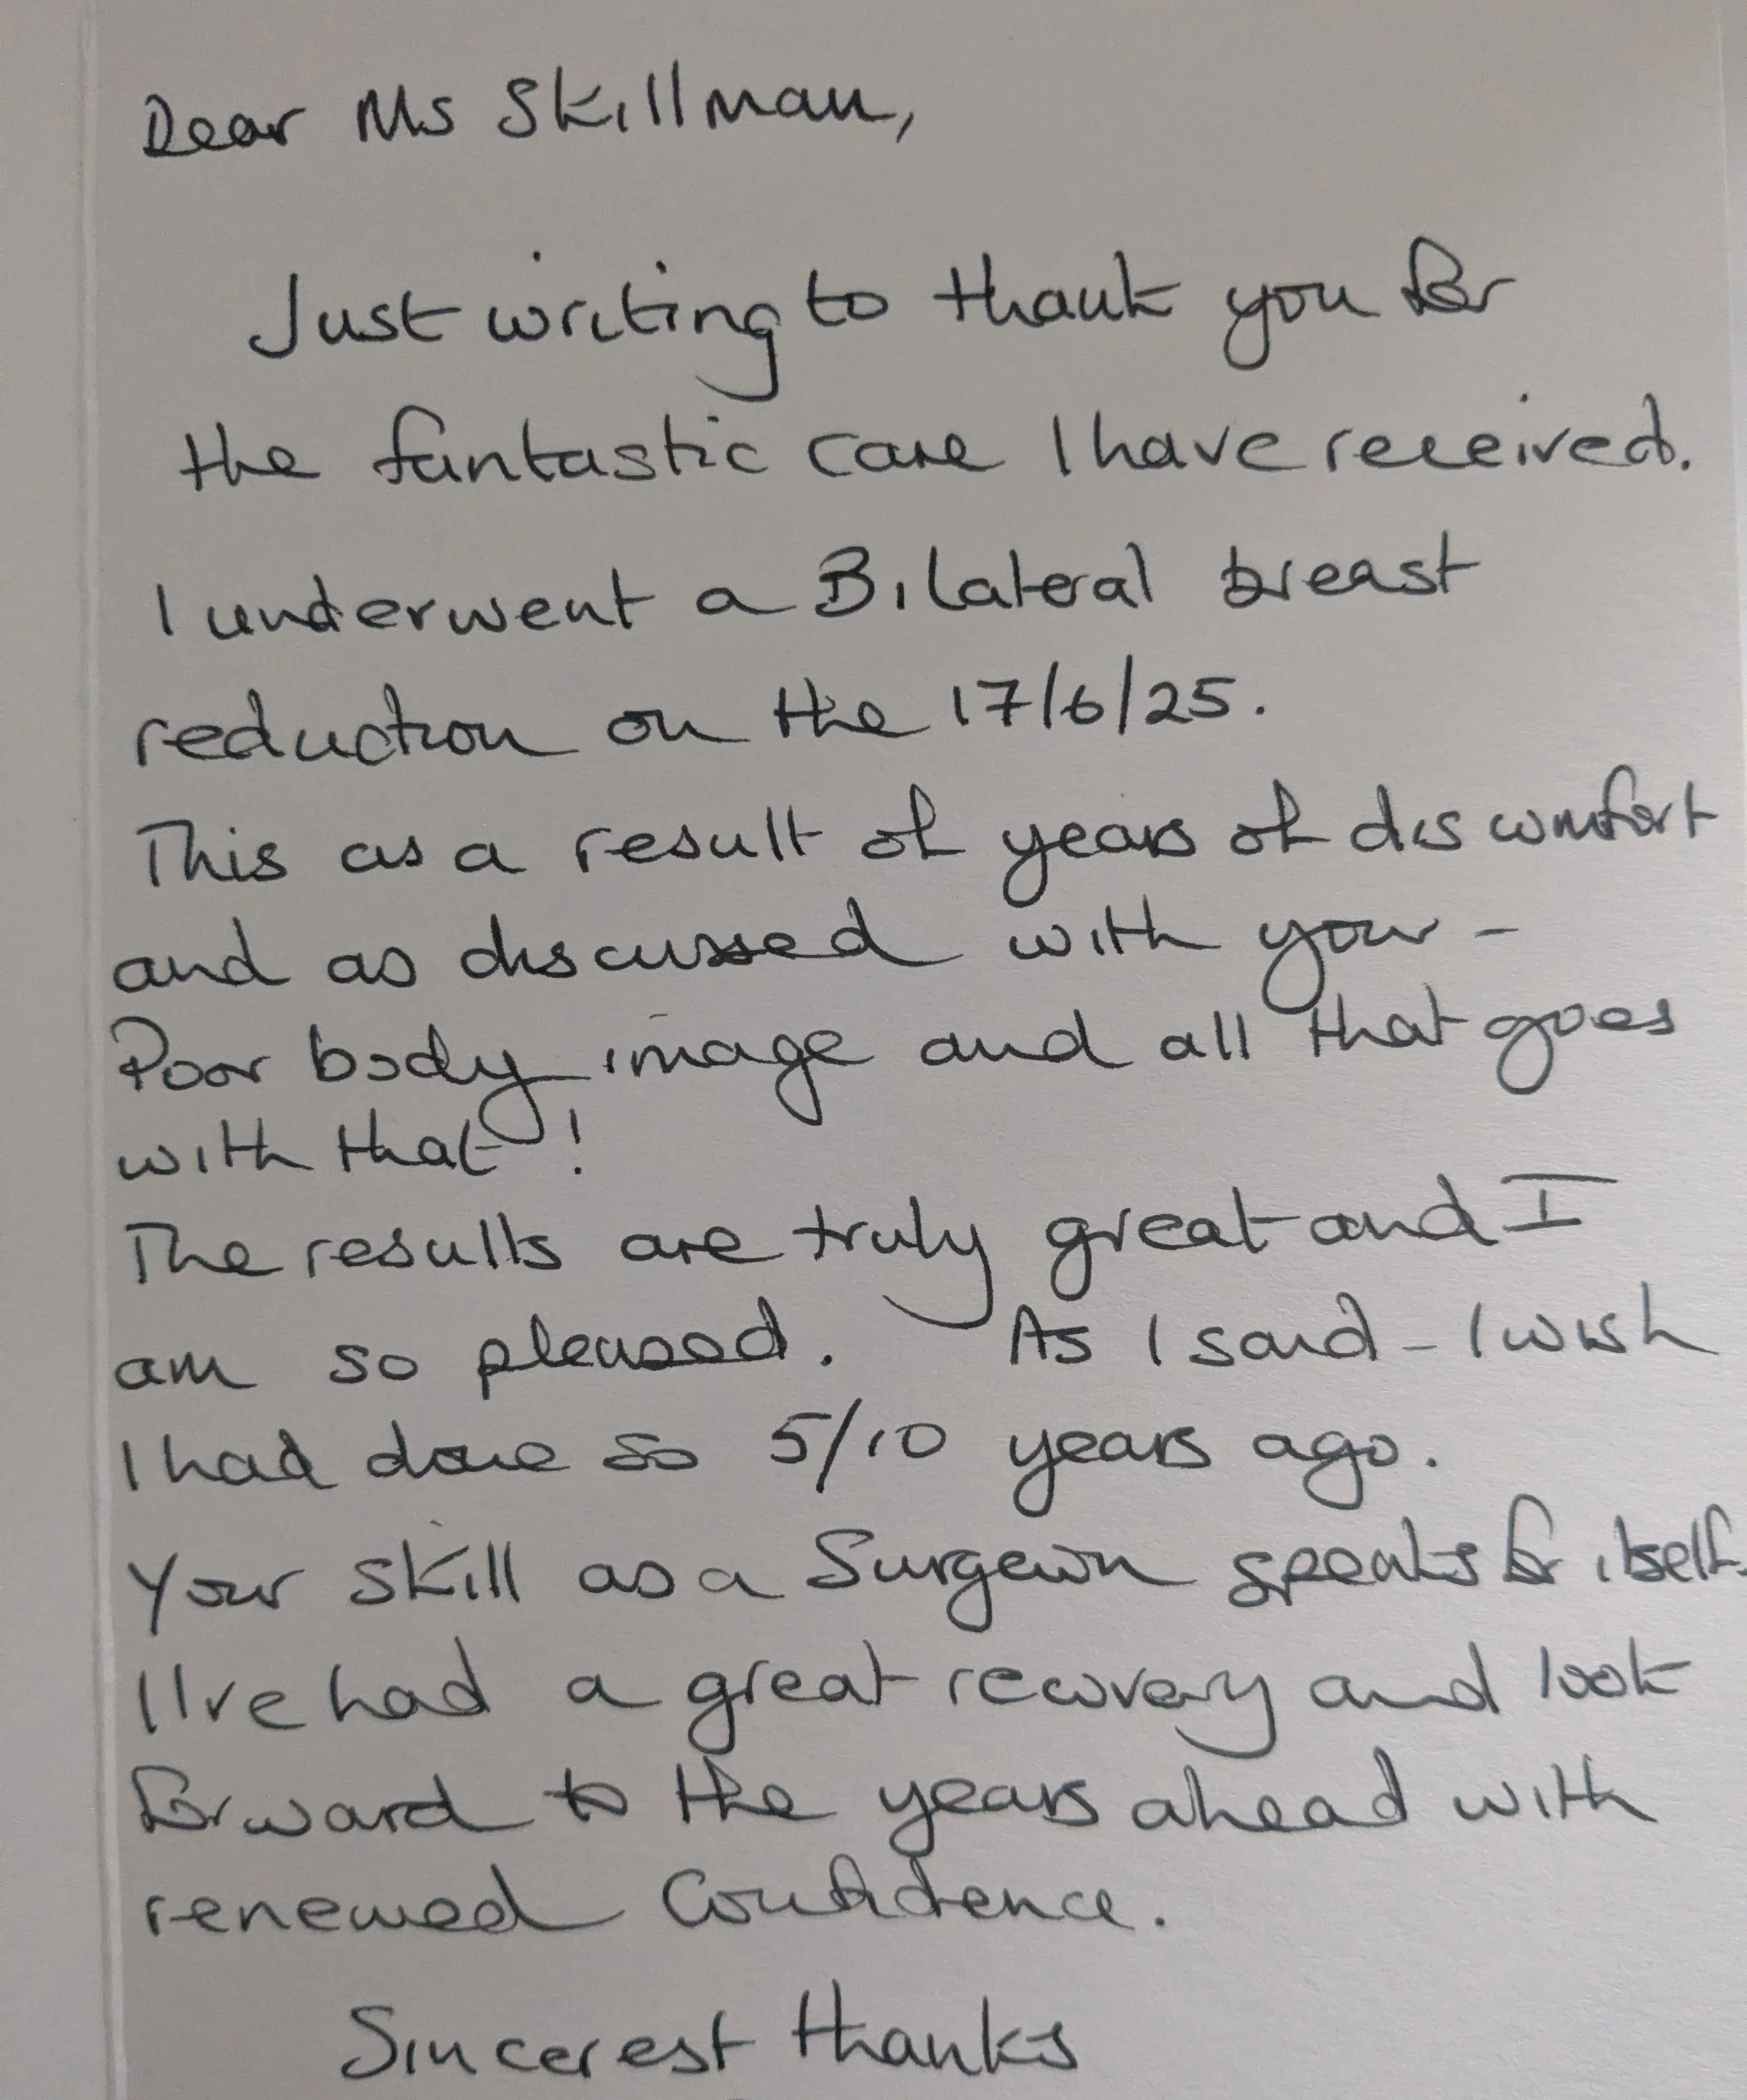 Dear Ms Skillman,
Just writing to thank you for
the fantastic care I have received.
I underwent a Bilateral breast
reduction on the 17/6/25.
This as a result of years of discomfort
and as discussed with your -
Poor body image and all that goes
with that !
The results are truly great and I
am so pleased. As I said - I wish
I had done so 5/10 years ago.
Your skill as a Surgeon speaks for itself.
I I've had a great recovery and look
forward to the years ahead with
renewed Confidence.
Sincerest thanks